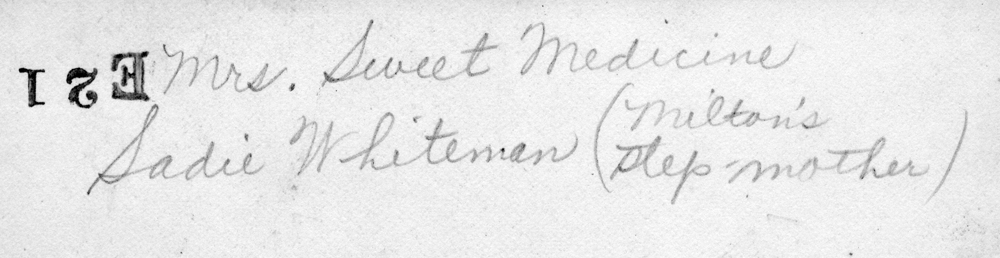 E21
Mrs. Sweet Medicine
Sadie Whiteman (Milton's
step-mother)